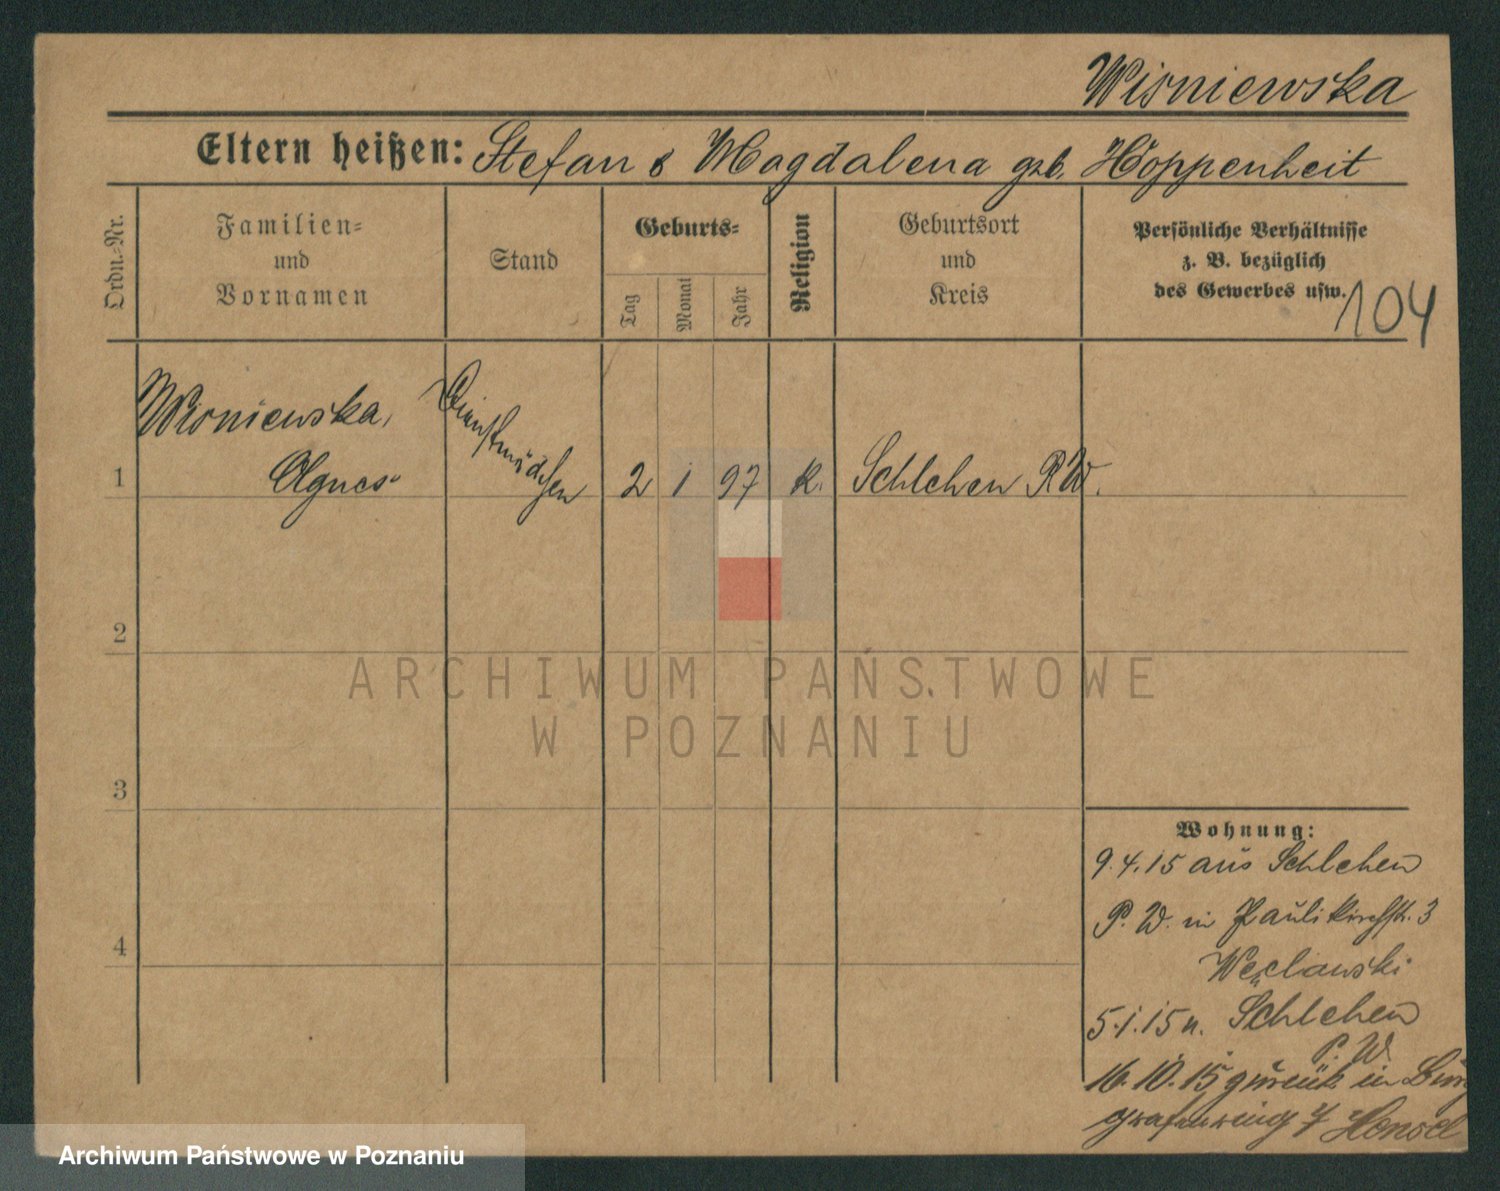 Wisniewska
Eltern heißen: Stefan & Magdalena geb. Hoppenheit
Ordn.-Nr.
Familien-
und
Vornamen
Stand
Geburts-
Tag
Monat
Jahr
Religion
Geburtsort
und
Kreis
Persönliche Verhältnisse
z. B. bezüglich
des Gewerbes usw.
104
1
Wisniewska,
Agnes
Dienstmädchen
2 1 97 k. Schlehen P.W.
2
3
4
Wohnung:
9.4.15 aus Schlehen
P. W. in Paulikirchstr. 3
Węclawski
5.1.15 n. Schlehen
P. W.
16.10.15 zurück in Burg
grafenring 7
ARCHIWUM PAŃSTWOWE
W POZNANIU
Archiwum Państwowe w Poznaniu